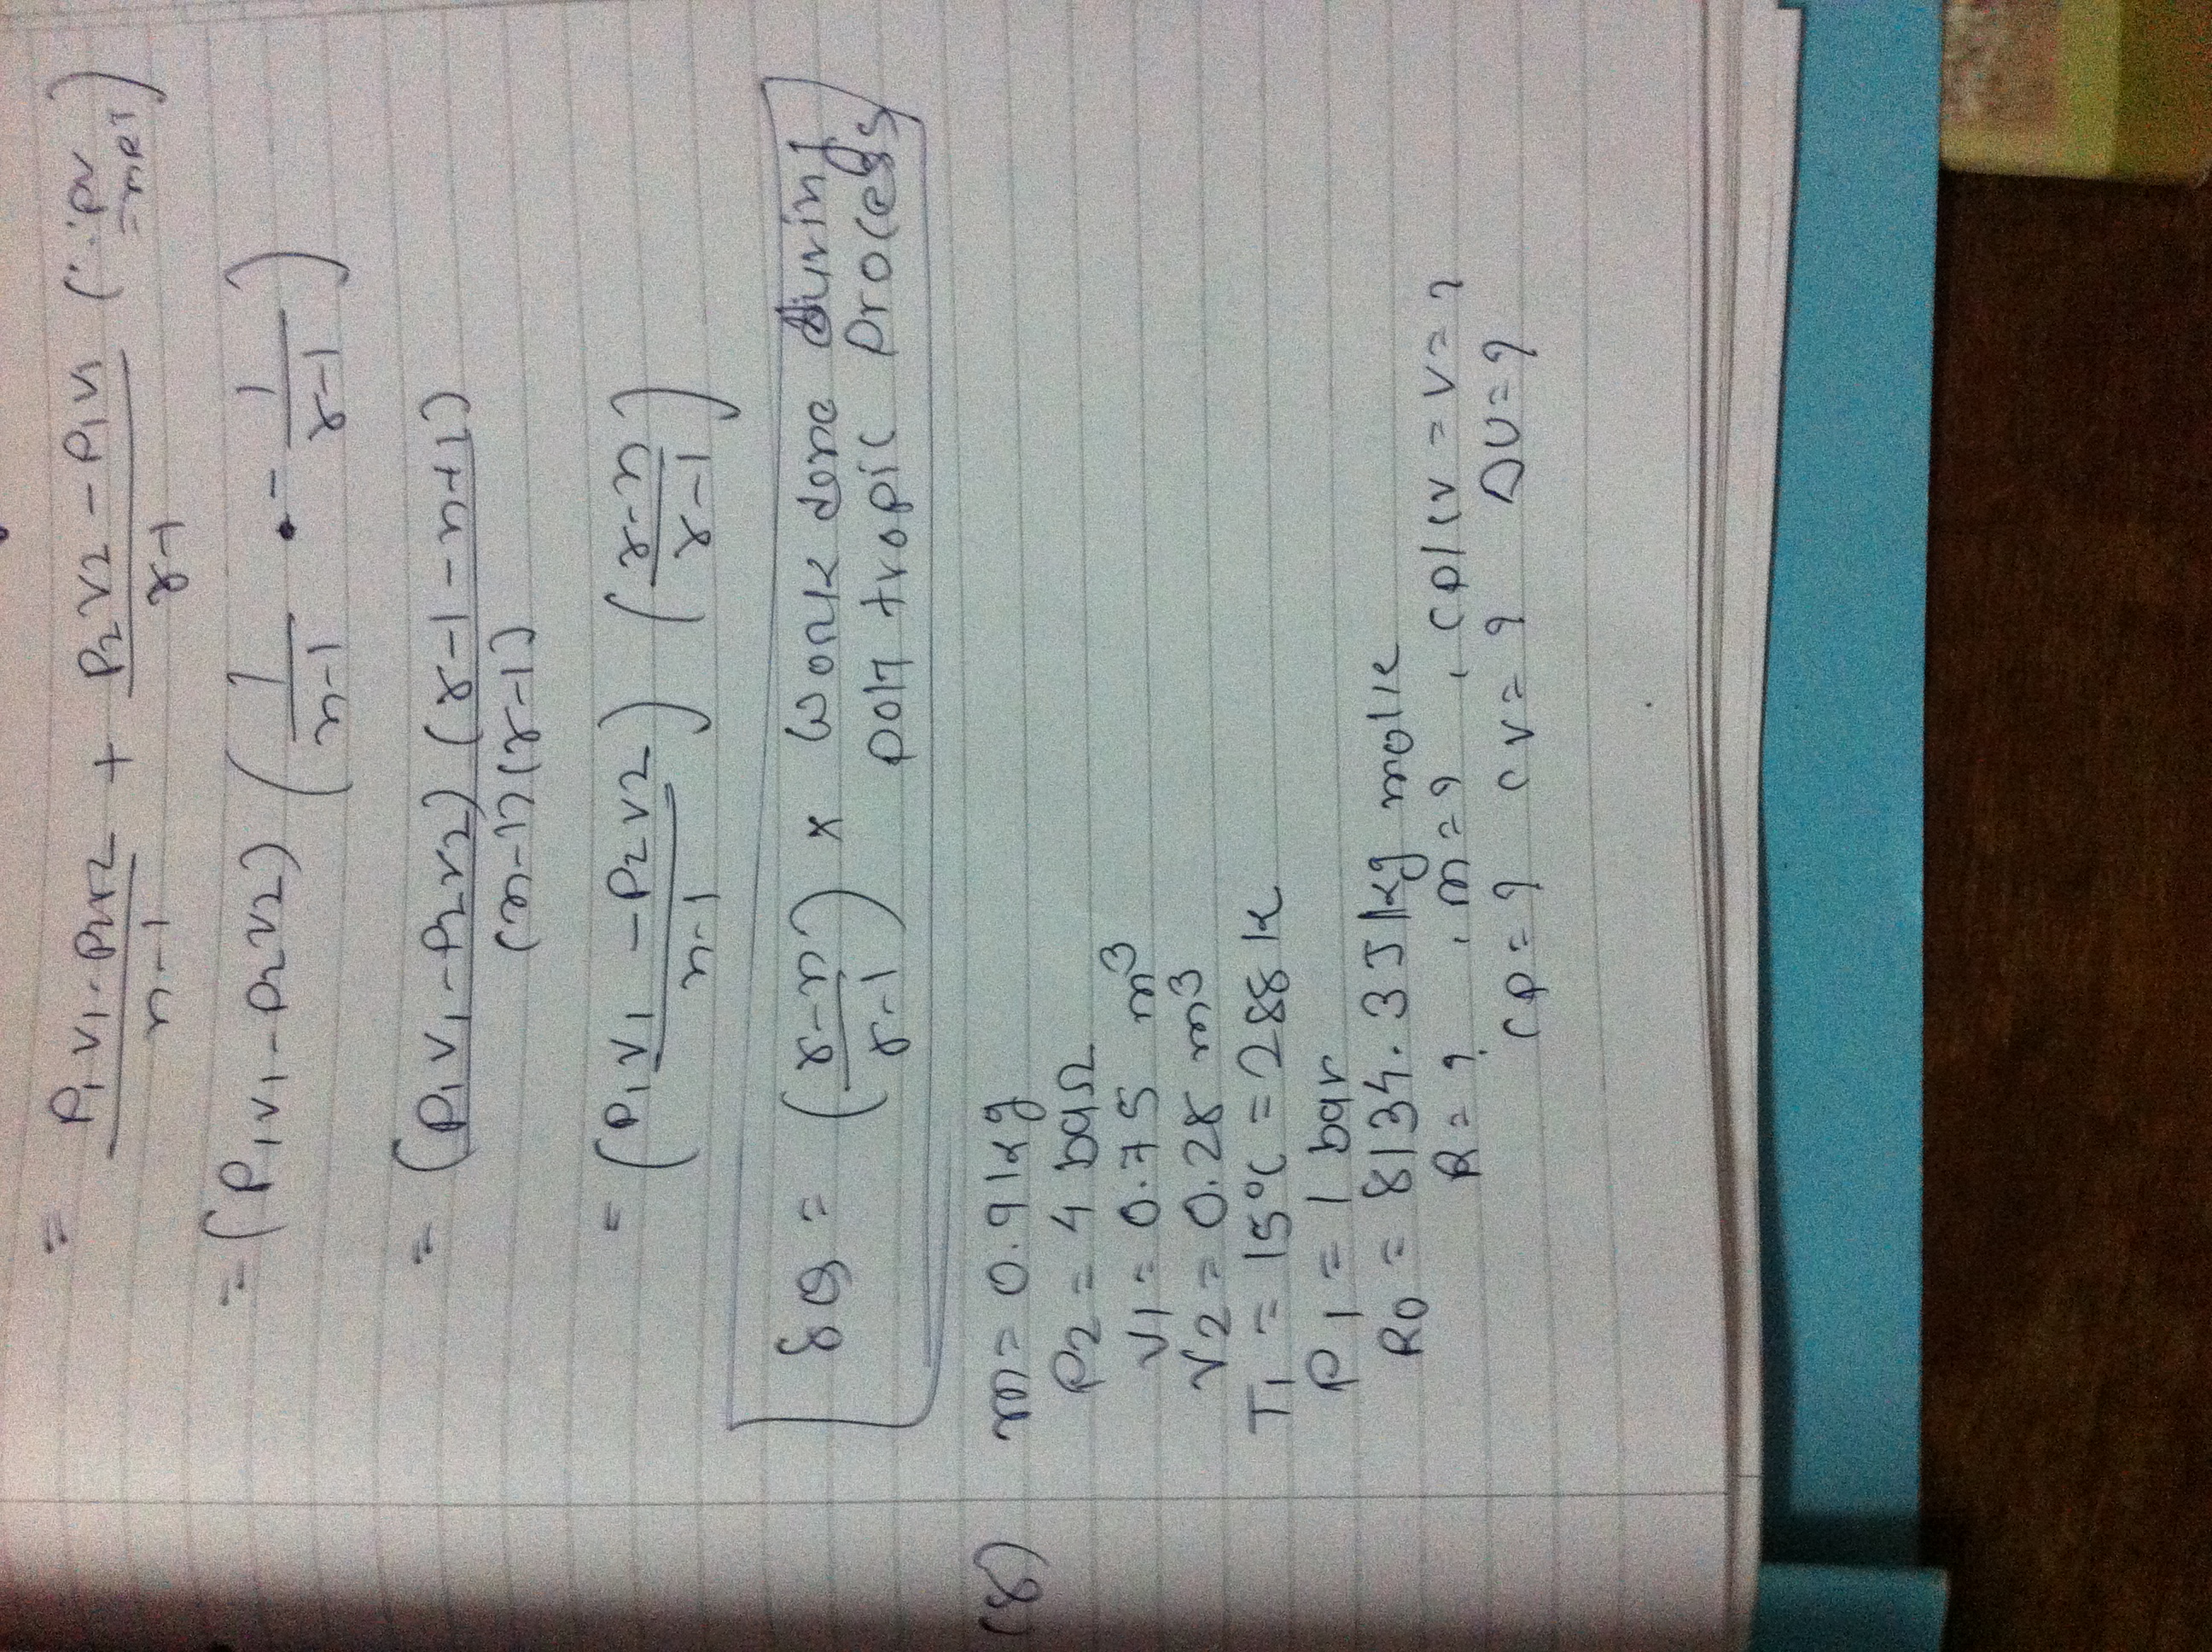 = (P₁V₁ - P₂V₂)/(n-1) + (P₂V₂ - P₁V₁)/(γ-1) (∵ PV = mRT)
= (P₁V₁ - P₂V₂) (1/(n-1) - 1/(γ-1))
= (P₁V₁ - P₂V₂) (γ-1-n+1) / (n-1)(γ-1)
= ((P₁V₁ - P₂V₂)/(n-1)) ((γ-n)/(γ-1))
δQ = ((γ-n)/(γ-1)) × Work done During
poly tropic process
(8) m = 0.9 kg
P2 = 4 bar
V1 = 0.75 m³
V2 = 0.28 m³
T1 = 15°C = 288 K
P1 = 1 bar
R0 = 8134.3 J/kg mol K
R = ? , m = ? , CP/CV = γ = ?
CP = ? CV = ? ΔU = ?